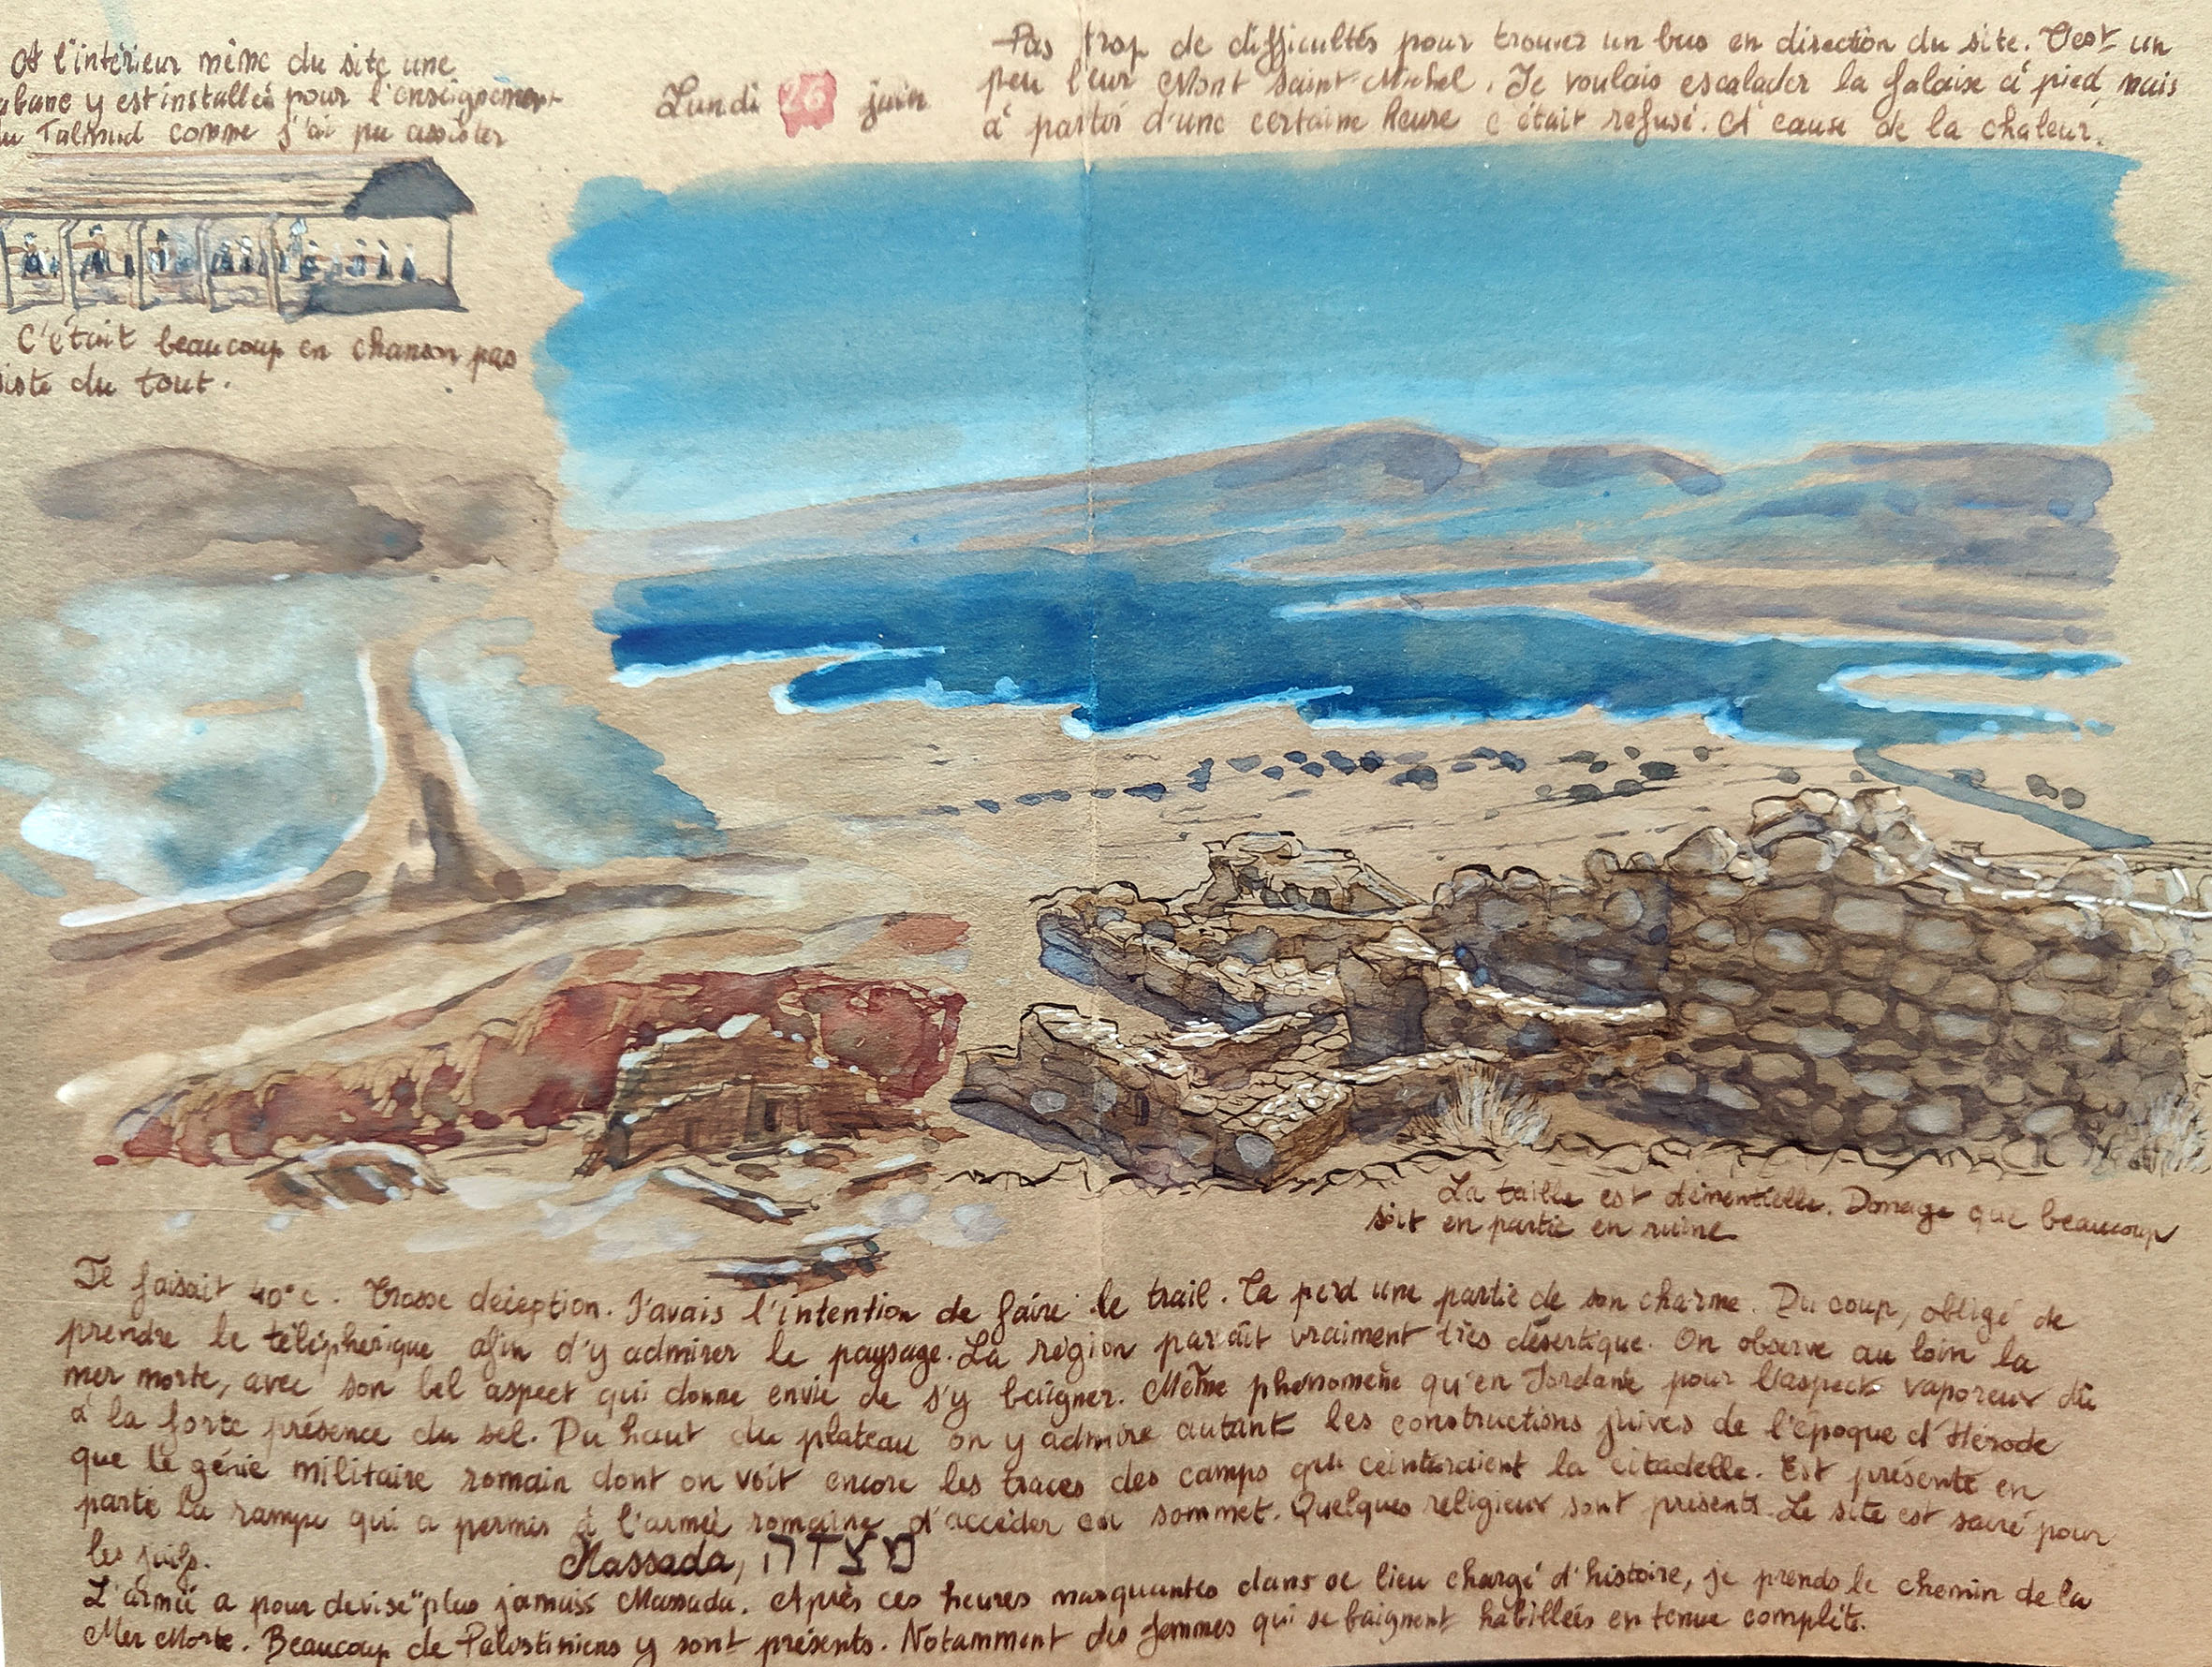 A l'intérieur même du site une
abane y est installée pour l'enseignement
du Talmud comme j'ai pu assister
C'était beaucoup en chanson pas
iste du tout.
Lundi 26 juin
Pas trop de difficultés pour trouver un bus en direction du site. C'est un
peu leur Mont Saint-Michel. Je voulais escalader la falaise à pied, mais
à partir d'une certaine heure c'était refusé. A cause de la chaleur.
La taille est démentielle. Domage que beaucoup
soit en partie en ruine
Il faisait 40°C. Grosse déception. J'avais l'intention de faire le trail. Ca perd une partie de son charme. Du coup, obligé de
prendre le téléphérique afin d'y admirer le paysage. La région paraît vraiment très désertique. On observe au loin la
mer morte, avec son bel aspect qui donne envie de s'y baigner. Même phénomène qu'en Jordanie pour l'aspect vaporeux dû
à la forte présence du sel. Du haut du plateau on y admire autant les constructions juives de l'époque d'Hérode
que le génie militaire romain dont on voit encore les traces des camps qui ceinturaient la citadelle. Est présente en
partie la rampe qui a permis à l'armée romaine d'accéder au sommet. Quelques religieux sont présents. Le site est sacré pour
les juifs.
Massada, מצדה
L'armée a pour devise "plus jamais Massada. Après ces heures marquantes dans ce lieu chargé d'histoire, je prends le chemin de la
Mer Morte. Beaucoup de Palestiniens y sont présents. Notamment des femmes qui se baignent habillées en tenue complète.